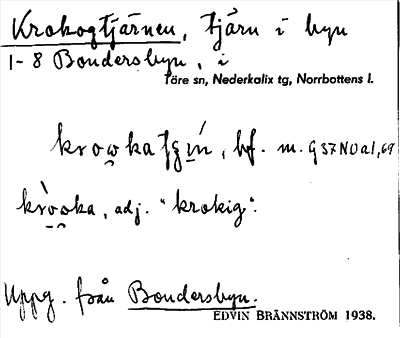 Krokogtjärnen, tjärn i byn
1-8 Bondersbyn, i
Töre sn, Nederkalix tg, Norrbottens l.
bf. m. G37NOa1,69
kròo̯ka, adj. "krokig".
Uppg. från Bondersbyn.
EDVIN BRÄNNSTRÖM 1938.